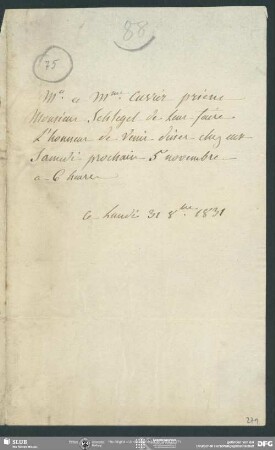 88
75
Mr. & Mme. Cuvier prient
Monsieur Schlegel de leur faire
l'honneur de venir diner chez eux
Samedi prochain 5 novembre
a 6 heures
Ce Lundi 31 8bre. 1831
279
SLUB
DFG